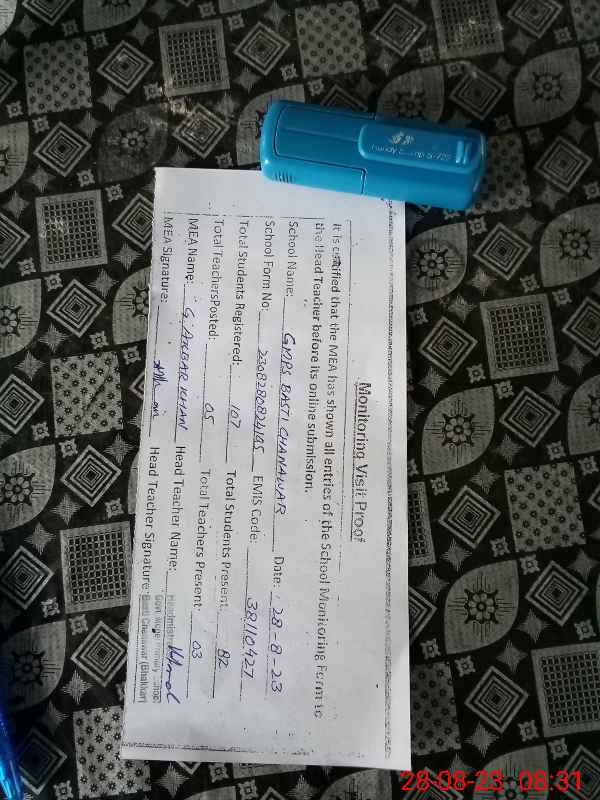 Monitoring Visit Proof
It is certified that the MEA has shown all entries of the School Monitoring Form to
the Head Teacher before its online submission.
School Name: GMPS BASTI CHANAWAR Date: 28-8-23
School Form No: EMIS Code: 38110427
Total Students Registered: 107 Total Students Present: 82
Total TeachersPosted: 05 Total Teachers Present: 03
MEA Name: G. AKBAR KHAN Head Teacher Name:
MEA Signature: Head Teacher Signature:
Basti Chanawar (Bhakkar)
28-08-23 08:31